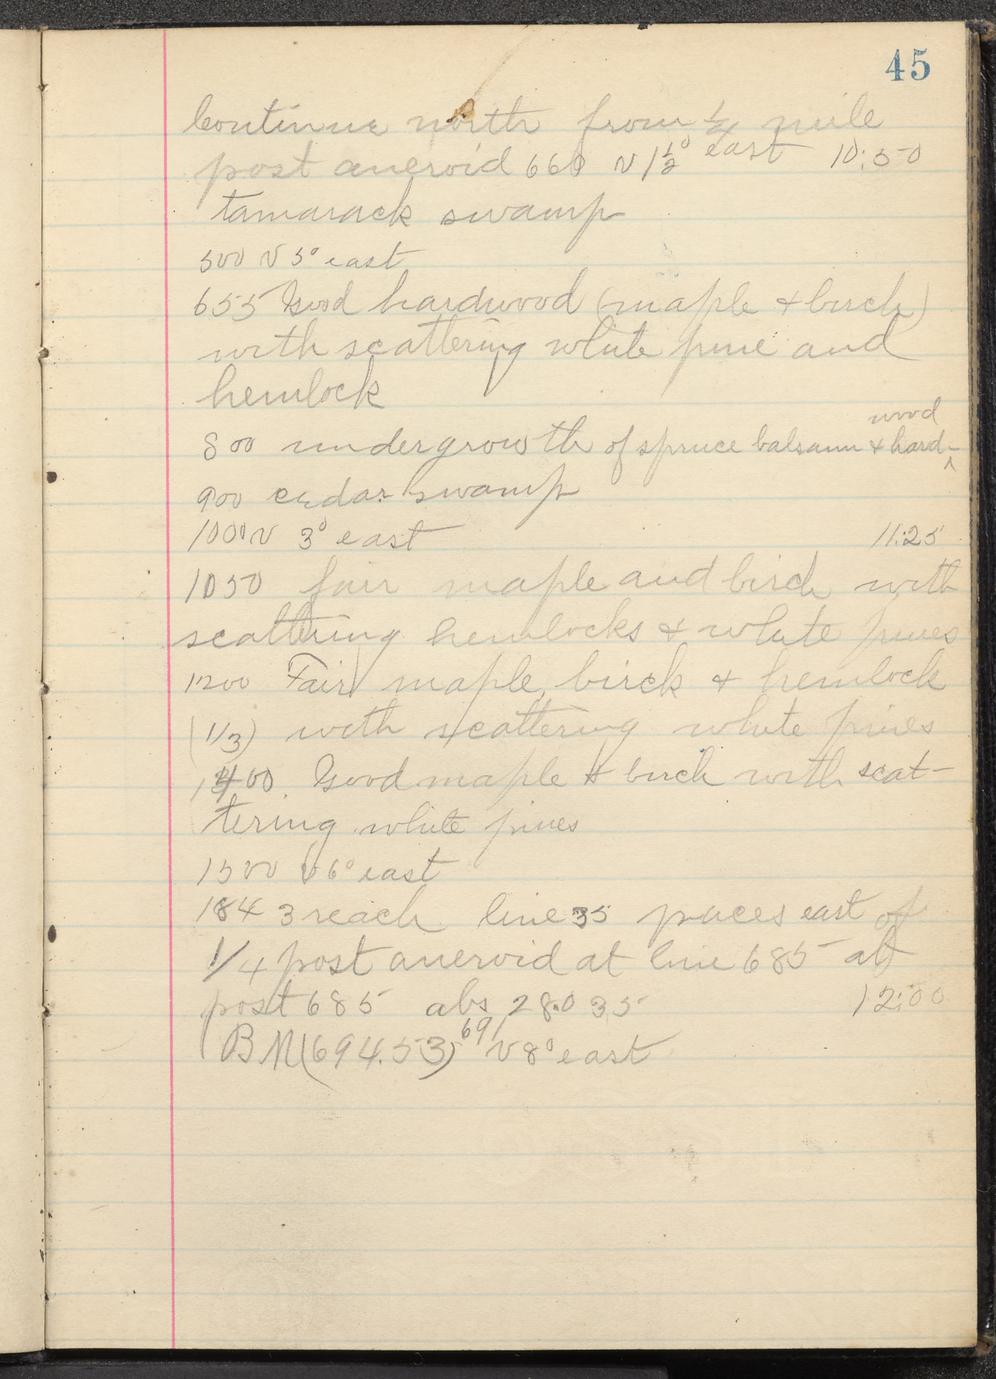 45
Continue north from 1/4 mile
post aneroid 660 V 1 1/2° east 10:50
tamarack swamp
500 V 5° east
655 Good hardwood (maple & birch)
with scattering white pine and
hemlock
wood
800 undergrowth of spruce balsam & hard-^
900 cedar swamp
1000 V 3° east 11:25
1050 fair maple and birch with
scattering hemlocks & white pines
1200 Fair maple, birch & hemlock
(1/3) with scattering white pines
1400 Good maple & birch with scat-
tering white pines
1500 V 6° east
1843 reach line 35 paces east of
1/4 post aneroid at line 685 at
post 685 abs 28.035 12:00
BM (694.53) 691 V 8° east